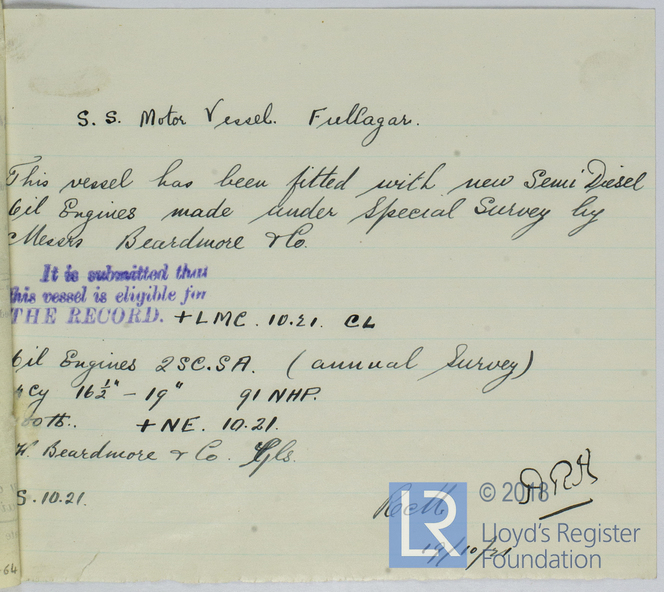 S. S. Motor Vessel. Fullagar.
This vessel has been fitted with new Semi Diesel
Oil Engines made under Special Survey by
Messrs Beardmore & Co.
It is submitted that
this vessel is eligible for
THE RECORD. + LMC. 10.21. CL
Oil Engines 2SC.SA. (annual Survey)
Cy 16½" - 19" 91 NHP.
+NE. 10.21.
W. Beardmore & Co. Gls.
S. 10.21.
19/10/21
LR
© 2018
Lloyd's Register
Foundation
64